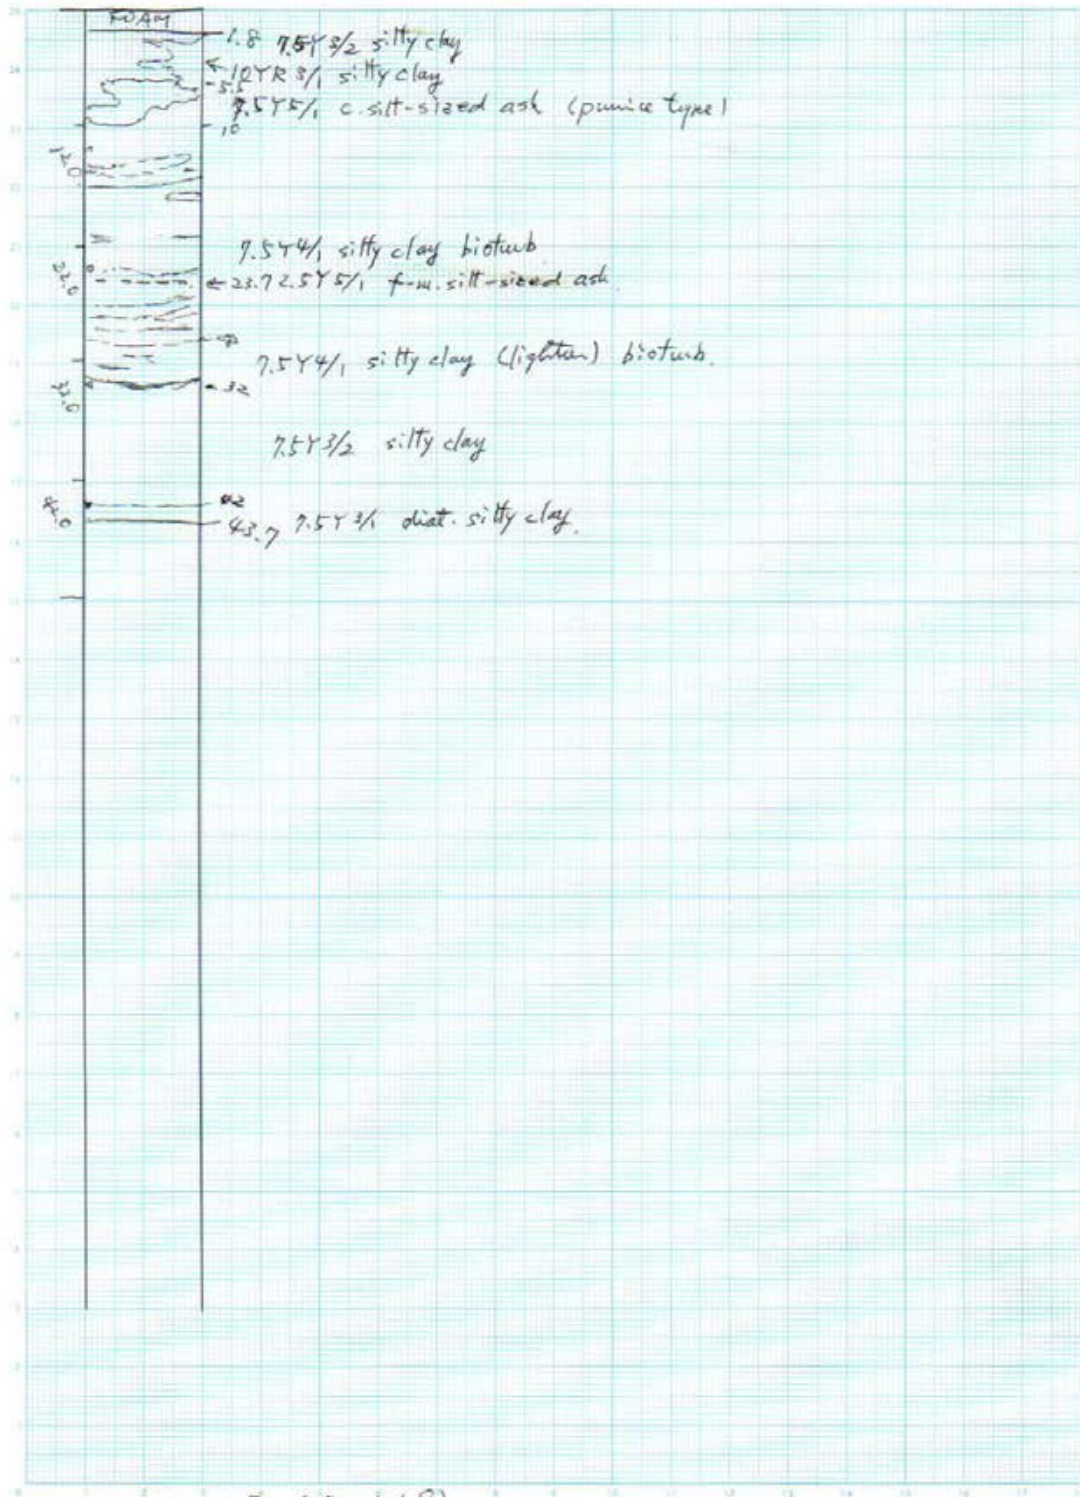 FOAM
1.8 7.5Y 3/2 silty clay
10YR 3/1 silty clay
5.5
7.5Y5/1 c. silt-sized ash (pumice type)
10
12.0
7.5Y4/1 silty clay bioturb
22.0
23.7 2.5Y 5/1 f-m. silt-sized ash
7.5Y4/1 silty clay (lighter) bioturb.
32
32.0
7.5Y 3/2 silty clay
42
42.0
43.7 7.5Y 3/1 diat. silty clay.